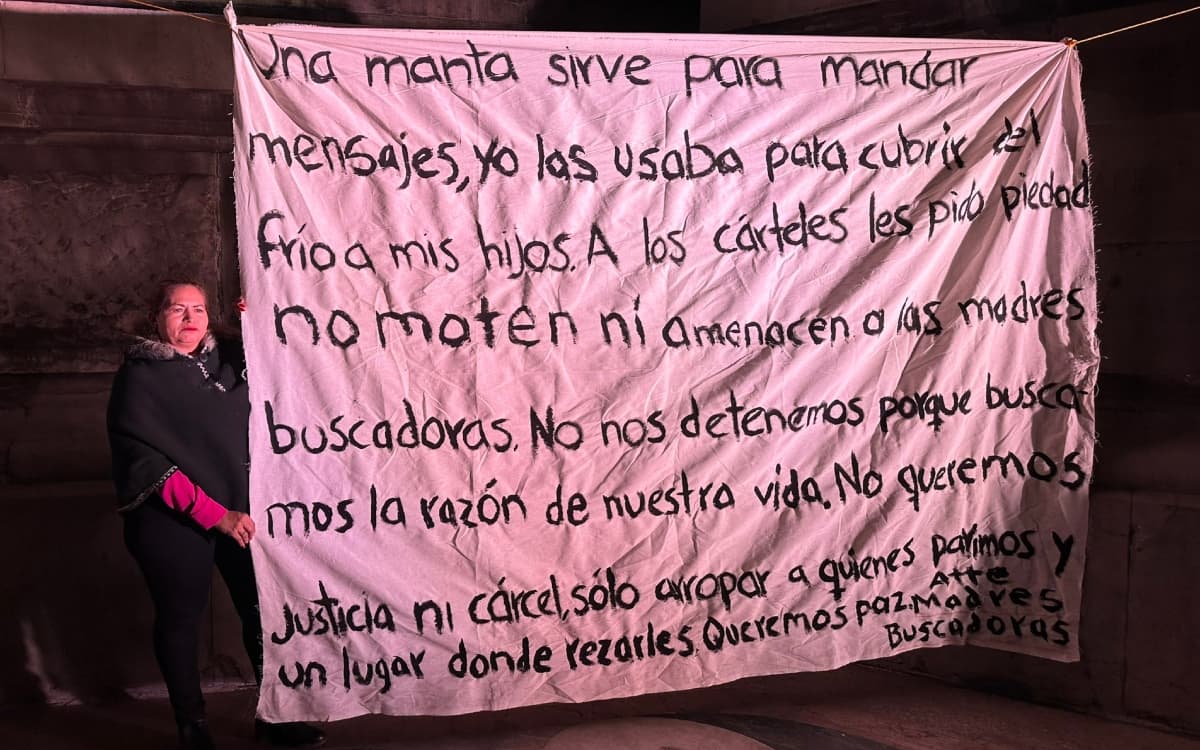 Una manta sirve para mandar
mensajes, yo las usaba para cubrir del
frío a mis hijos. A los cárteles les pido piedad
no maten ni amenacen a las madres
buscadoras. No nos detenemos porque busca-
mos la razón de nuestra vida. No queremos
justicia ni cárcel, sólo arropar a quienes parimos y
un lugar donde rezarles. Queremos paz. Atte
Madres
Buscadoras